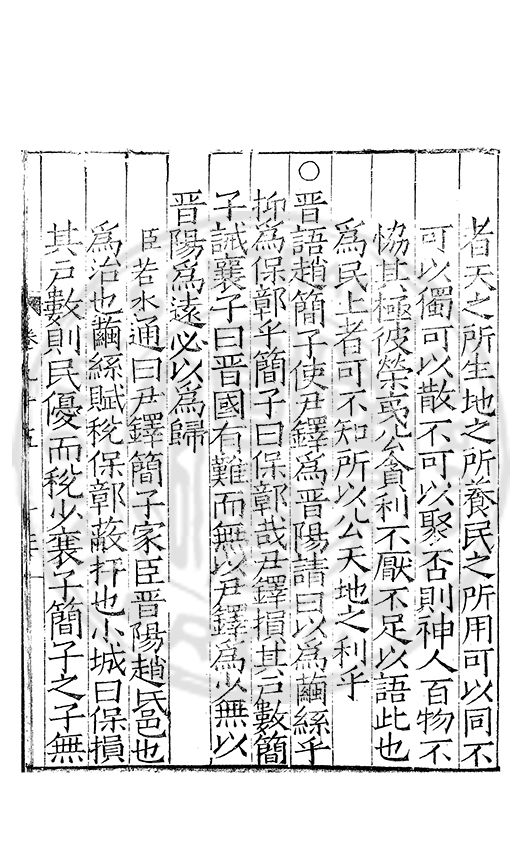 者天之所生地之所養民之所用可以同不
可以獨可以散不可以聚否則神人百物不
恊其極彼榮夷公貪利不厭不足以語此也
爲民上者可不知所以公天地之利乎
○晉語趙簡子使尹鐸爲晉陽請曰以爲繭絲乎
抑爲保鄣乎簡子曰保鄣哉尹鐸損其戸數簡
子誡襄子曰晉國有難而無以尹鐸爲少無以
晉陽爲遠必以爲歸
臣若水通曰尹鐸簡子家臣晉陽趙氏邑也
爲治也繭絲賦稅保鄣蔽扞也小城曰保損
其戸數則民優而稅少襄子簡子之子無